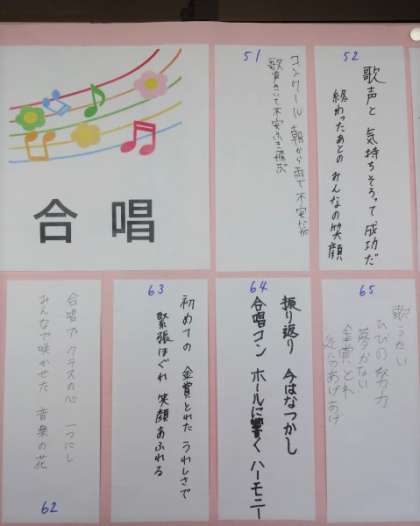 合唱
51
コンクール 朝から雨で 不安だが
歌声きいて 不安ふき飛ぶ
52
歌声と 気持ちそろって 成功だ
終わったあとの みんなの笑顔
合唱で クラスの心 一つにし
みんなで咲かせた 音楽の花
62
63
初めての 金賞とれた うれしさで
緊張ほぐれ 笑顔あふれる
64
振り返り 今はなつかし
合唱コン ホールに響く ハーモニー
65
歌うたい
ひびの努力
金賞とれ